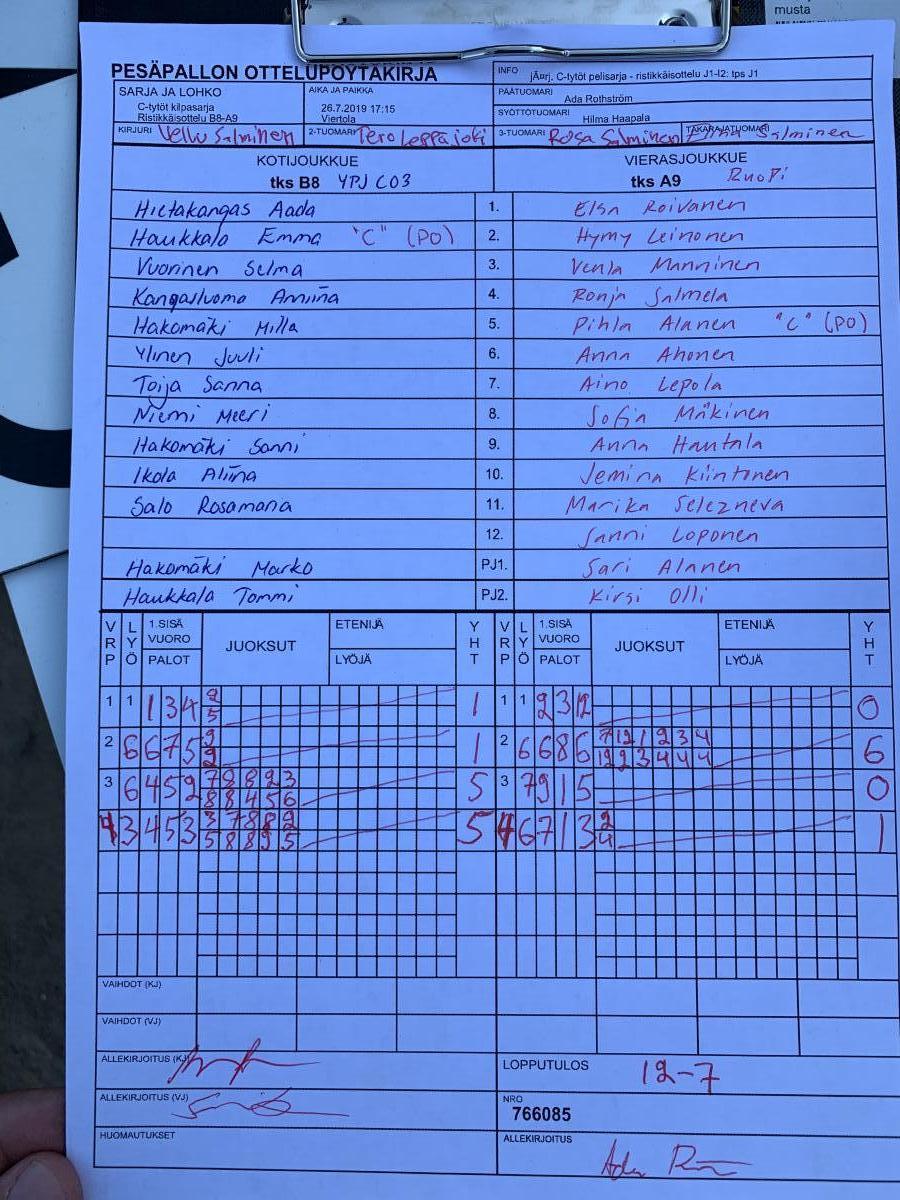 musta
PESÄPALLON OTTELUPÖYTÄKIRJA
INFO jÃ¤rj. C-tytöt pelisarja - ristikkäisottelu J1-I2: tps J1
SARJA JA LOHKO
C-tytöt kilpasarja
Ristikkäisottelu B8-A9
AIKA JA PAIKKA
26.7.2019 17:15
Viertola
PÄÄTUOMARI
Ada Rothström
SYÖTTÖTUOMARI
Hilma Haapala
KIRJURI Vellu Salminen 2-TUOMARI Tero Leppäjoki 3-TUOMARI Roosa Salminen TAKARAJATUOMARI Salminen
KOTIJOUKKUE VIERASJOUKKUE
tks B8 YPJ C03 tks A9 RuoPi
Hietakangas Aada 1. Elsa Roivanen
Haukkala Emma "C" (PO) 2. Hymy Leinonen
Vuorinen Selma 3. Venla Manninen
Kangasluoma Anniina 4. Ronja Salmela
Hakomäki Milla 5. Pihla Alanen "C" (PO)
Ylinen Juuli 6. Anna Ahonen
Toija Sanna 7. Aino Lepola
Niemi Meeri 8. Sofia Mäkinen
Hakomäki Sanni 9. Anna Hautala
Ikola Aliina 10. Jemina Kiintonen
Salo Rosamaria 11. Marika Selezneva
12. Sanni Loponen
Hakomäki Marko PJ1. Sari Alanen
Haukkala Tommi PJ2. Kirsi Olli
VRP LYÖ 1.SISÄ VUORO PALOT JUOKSUT ETENIJÄ LYÖJÄ YHT VRP LYÖ 1.SISÄ VUORO PALOT JUOKSUT ETENIJÄ LYÖJÄ YHT
1 1 1 3 4 2 1 1 1 2 3 12 0
5
2 6 6 7 5 9 1 2 6 6 8 6 7 12 1 2 3 4 6
2 12 2 3 4 4 4
3 6 4 5 9 7 8 8 2 3 5 3 7 9 1 5 0
8 8 4 5 6
4 3 4 5 3 3 7 8 8 2 5 4 6 7 1 3 2 1
5 8 8 9 5 4
VAIHDOT (KJ)
VAIHDOT (VJ)
ALLEKIRJOITUS (KJ) LOPPUTULOS 12-7
ALLEKIRJOITUS (VJ) NRO
766085
HUOMAUTUKSET ALLEKIRJOITUS